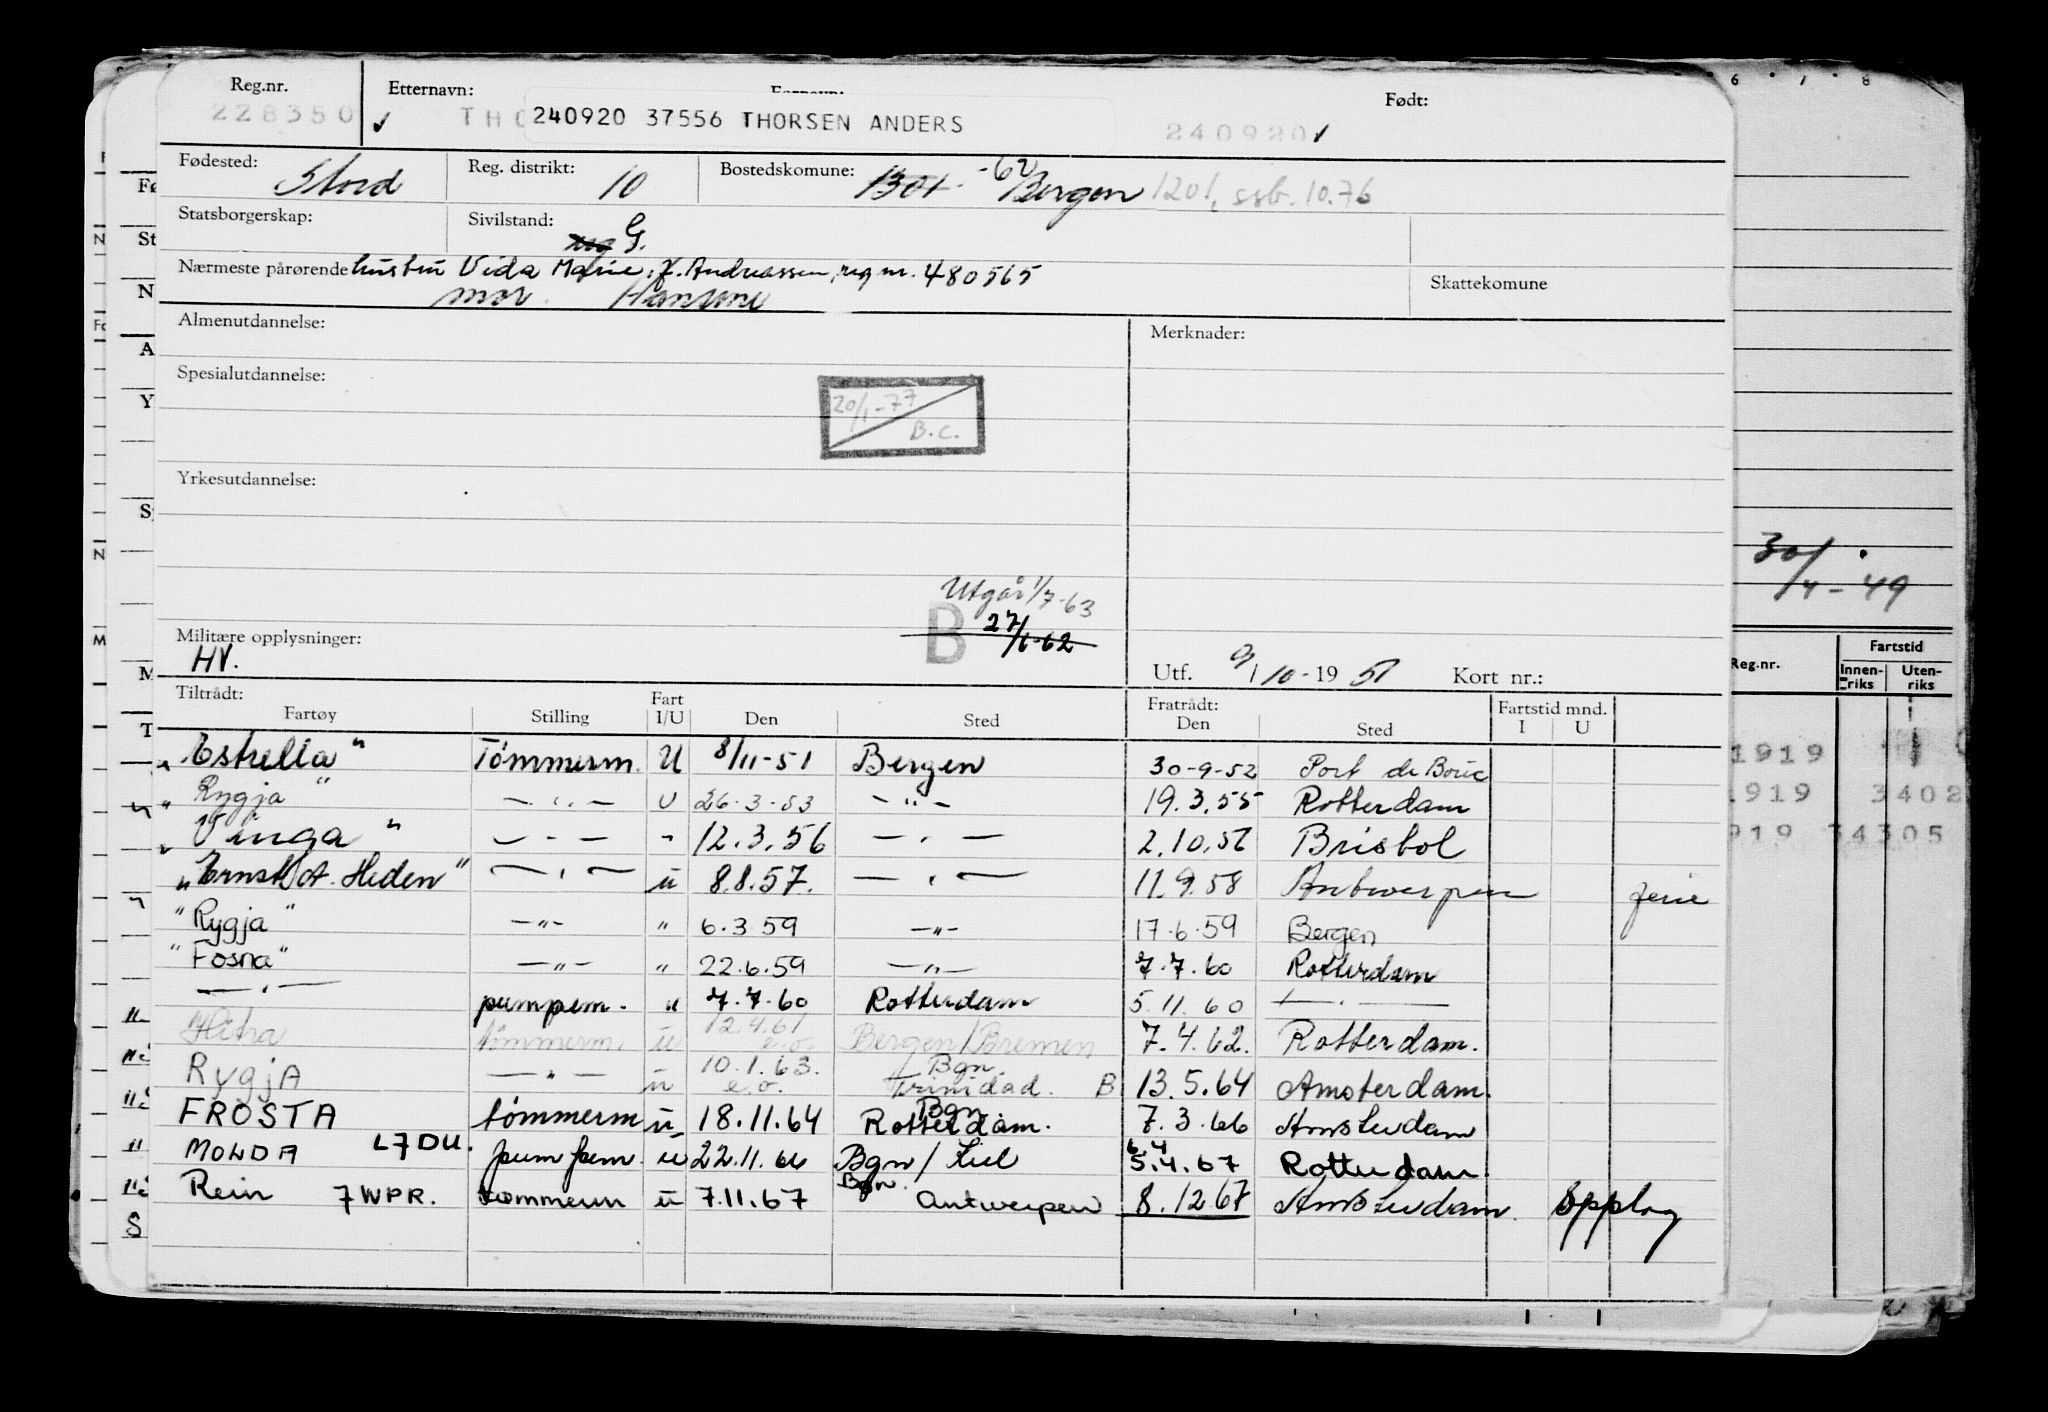 Reg.nr. Etternavn: Fornavn: Født:
228350 THO 240920 37556 THORSEN ANDERS 240920
Fødested: Stord Reg. distrikt: 10 Bostedskommune: 1301 -62 Bergen 1201, ssb. 10.76
Statsborgerskap: Sivilstand: ug G.
Nærmeste pårørende hustru Vida Marie, f. Andreassen, reg nr. 480565 Skattekomune
mor
Almenutdannelse: Merknader:
Spesialutdannelse:
20/1-77
B.c.
Yrkesutdannelse:
Utgår 1/7-63
B 27/1-62
Militære opplysninger:
HV.
Utf. 9/10-1951 Kort nr.:
Tiltrådt: Fratrådt: Fartstid mnd.
Fartøy Stilling Fart I/U Den Sted Den Sted I U
"Estrella" Tømmerm. U 8/11-51 Bergen 30-9-52 Port de Bouc
"Rygja" —"— U 26.3.53 —"— 19.3.55 Rotterdam
"Vinga" —"— " 12.3.56 —"— 2.10.56 Bristol
"Ernst A. Heden" —"— u 8.8.57. —"— 11.9.58 Antwerpen ferie
"Rygja" —"— " 6.3.59 —"— 17.6.59 Bergen
"Fosna" —"— " 22.6.59 —"— 7.7.60 Rotterdam
—"— pumpem. " 7.7.60 Rotterdam 5.11.60 —"—
Hitra tømmerm. u 12.4.61 e.o. Bergen/Bremen 7.4.62. Rotterdam.
RygjA —"— u 10.1.63. e.o. Bgn. Trinidad. B 13.5.64 Amsterdam.
FROSTA tømmerm u 18.11.64 Bgn Rotterdam. 7.3.66 Amsterdam
MOLDA L7DU. pumpem. u 22.11.66 Bgn/Kiel 6.4 5.4.67 Rotterdam
Rein 7WPR. tømmerm u 7.11.67 Bgn. Antwerpen 8.12.67 Amsterdam. Opplag
30/4-49
Reg.nr. Fartstid
Innenriks Utenriks
1919
1919 3402
919 34305